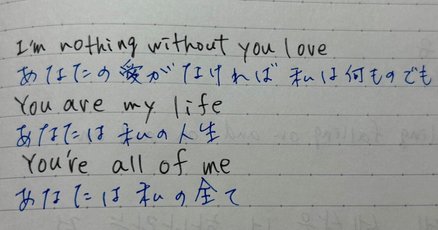 I'm nothing without you love
あなたの愛がなければ 私は何ものでも
You are my life
あなたは私の人生
You're all of me
あなたは私の全て